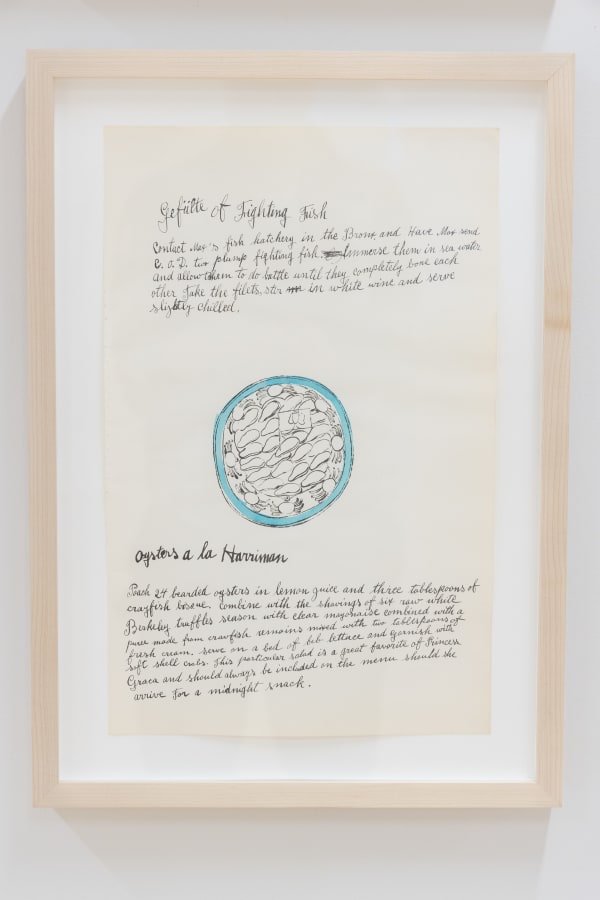 Gefülte of Fighting Fish
Contact Max's fish hatchery in the Bronx and Have Max send
C.O.D. two plump fighting fish. Immerse them in sea water
and allow them to do battle until they completely bone each
other. Take the filets, stir in white wine and serve
slightly chilled.
Oysters a la Harriman
Poach 24 bearded oysters in lemon guice and three tablespoons of
crayfish bisque, combine with the shavings of six raw white
Berkeley truffles season with clear mayonaise combined with a
puree made from crawfish remains mixed with two tablespoons of
fresh cream. serve on a bed of bib lettace and garnish with
soft shell crabs. This particular salad is a great favorite of Princess
Graca and should always be included on the menu should she
arrive for a midnight snack.